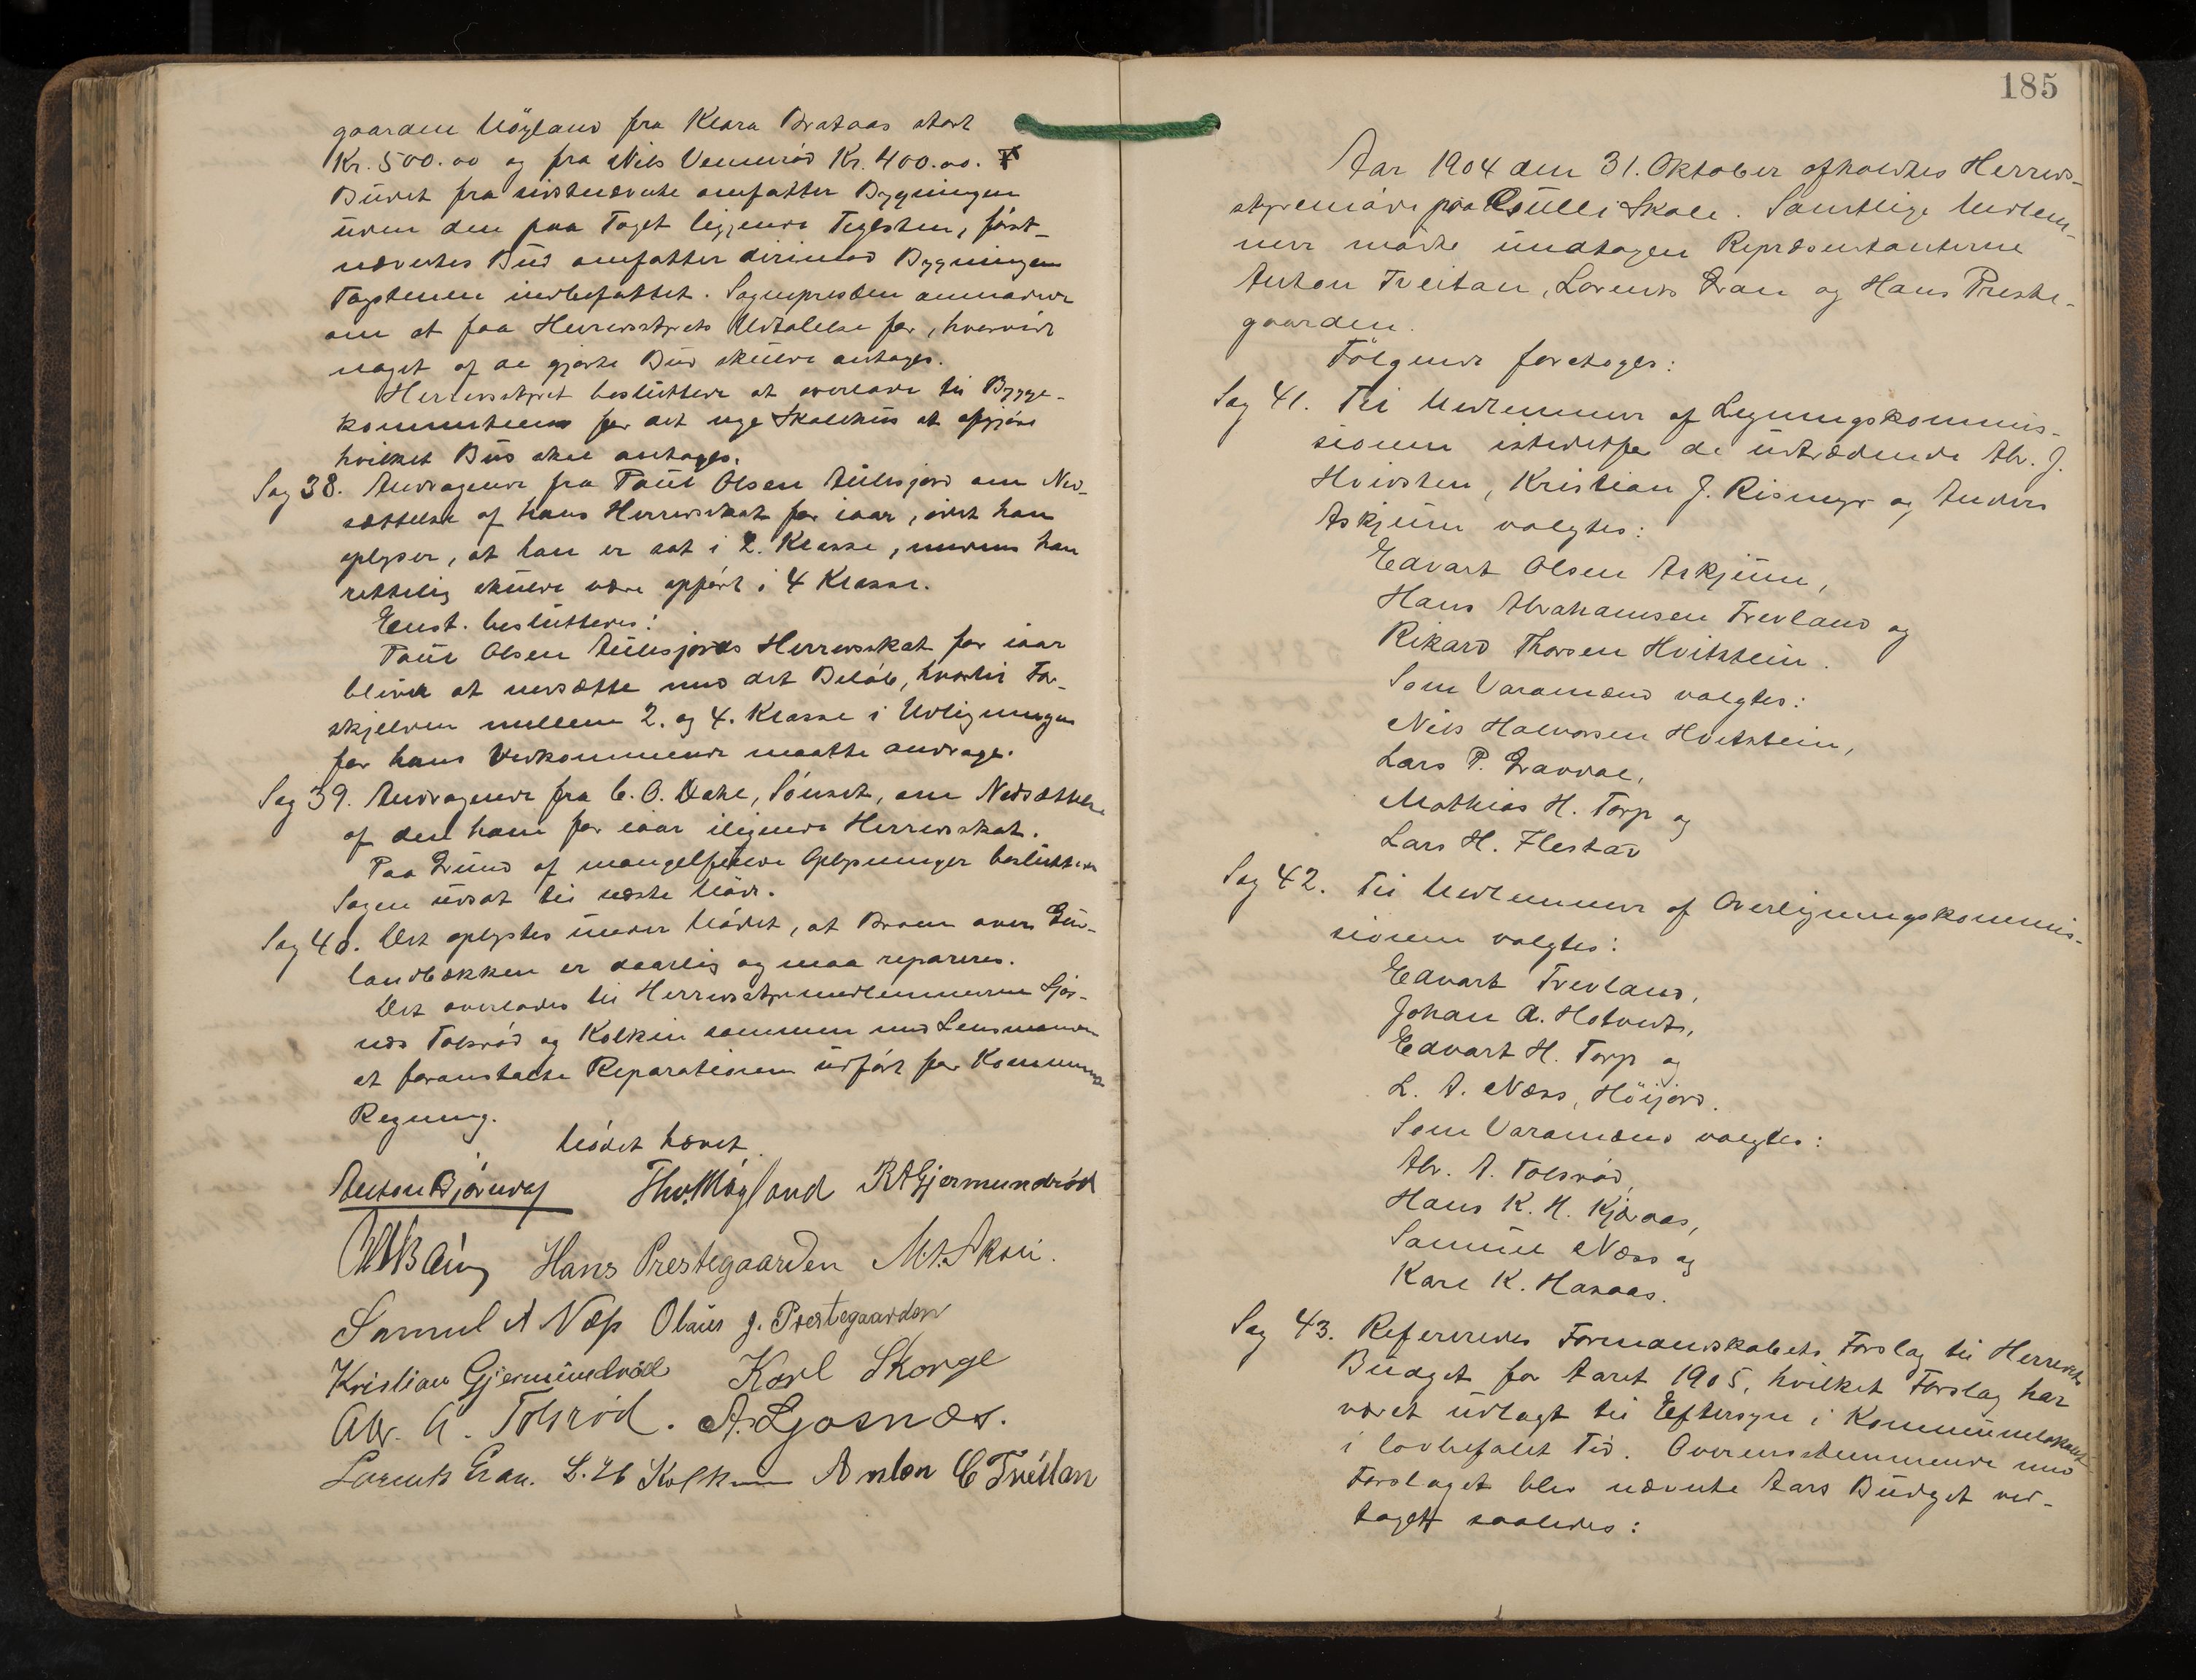 gaarden Möyland fra Klara Brataas stort
Kr. 500.00 og fra Nils Vennerød Kr. 400.00.
Budet fra sidstnævnte omfatter Bygningen
uden den paa Taget liggende Teglsten, først-
nævntes Bud omfatter derimod Bygningen
Tagstenen indbefattet. Sognepresten anmodede
om at faa Herredsstyrets Udtalelse for, hvorvidt
noget af de gjorte Bud skulde antages.
Herredsstyret besluttede at overlade til Bygge-
kommiteen for det nye Skolehus at afgjøre
hvilket Bud skal antages.
Sag 38. Andragende fra Paul Olsen Aulesjord om Ned-
sættelse af hans Herredsskat for iaar, idet han
oplyser, at han er sat i 2. Klasse, medens han
rettelig skulde være opført i 4 Klasse.
Enst. besluttedes:
Paul Olsen Aulesjords Herredsskat for iaar
bliver at nedsætte med det Beløb, hvortil For-
skjellen mellem 2. og 4. Klasse i Udligningen
for hans Vedkommende maatte andrage.
Sag 39. Andragende fra C. O. Dahl, Sönset, om Nedsættelse
af den ham for iaar ilignede Herredsskat.
Paa Grund af mangelfulde Oplysninger besluttedes
Sagen udsat til næste Möde.
Sag 40. Det oplystes under Mödet, at Broen over Gur-
landbækken er daarlig og maa repareres.
Det overlades til Herredsstyremedlemmerne Ljos-
næs Tolsrød og Kolkin sammen med Lensmanden
at foranstalte Reparationen udført for Kommunens
Regning.
Mödet hævet
Anton Bjørndal Thv. Møyland R A Gjermundrød
Hans Prestegaarden M. A. Skoli.
Samuel A Næss Olaus J. Prestegaarden
Kristian Gjermundrød Karl Skorge
Abr. A. Tolsrød. A. Ljosnæs.
Lorents Gran. L. H Kolkin Anton C Treitan
185
Aar 1904 den 31. Oktober afholdtes Herreds-
styremöde paa Gulli Skole. Samtlige Medlem-
mer mødte undtagen Repræsentanterne
Anton Treitan, Lorents Gran og Hans Preste-
gaarden.
Følgende foretoges:
Sag 41. Til Medlemmer af Ligningskommis-
sionen istedetfor de udtrædende Abr. J.
Hvidsten, Kristian J. Rismyr og Anders
Askjum valgtes:
Edvart Olsen Askjum,
Hans Abrahamsen Trevland og
Rikard Thorsen Hvitstein.
Som Varamænd valgtes:
Nils Halvorsen Hvitstein,
Lars P. Gravdal,
Mathias H. Torp og
Lars H. Flestad
Sag 42. Til Medlemmer af Overligningskommis-
sionen valgtes:
Edvart Trevland,
Johan A. Hotvedt,
Edvart H. Torp og
L. A. Næss, Höijord.
Som Varamænd valgtes:
Abr. A. Tolsrød,
Hans K. H. Kjæraas,
Samuel Næss og
Karl K. Hasaas.
Sag 43. Refereredes Formandskabets Forslag til Herredets
Budget for Aaret 1905, hvilket Forslag har
været udlagt til Eftersyn i Kommunelokalet
i lovbefalet Tid. Overensstemmende med
Forslaget blev nævnte Aars Budget ved-
taget saaledes: